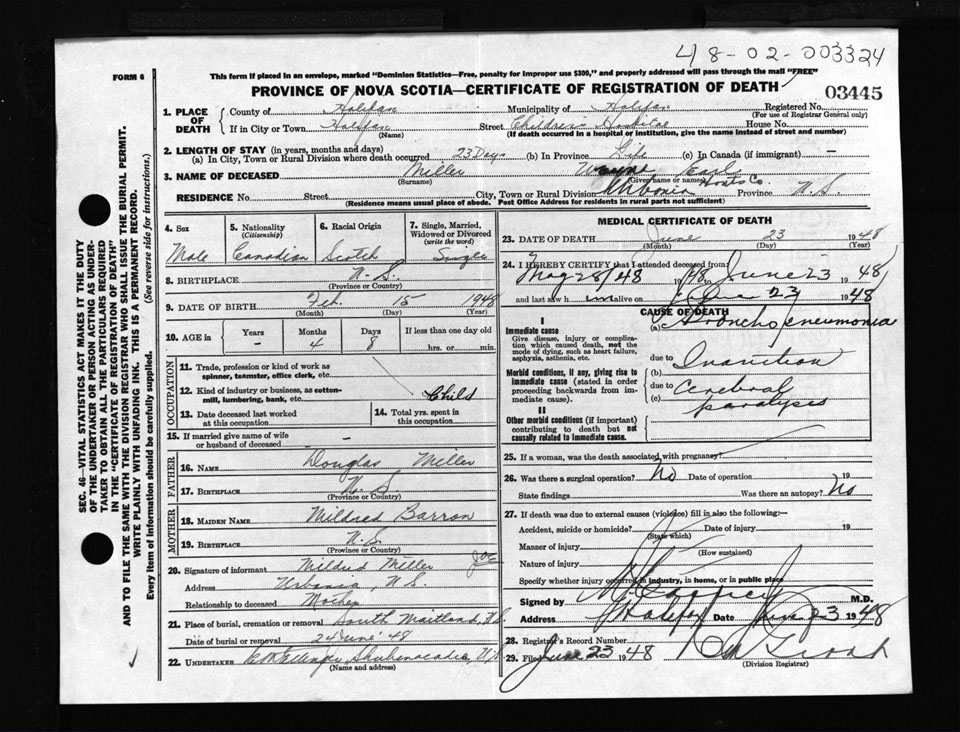 48-02-003324
FORM 6
This form if placed in an envelope, marked "Dominion Statistics—Free, penalty for improper use $300," and properly addressed will pass through the mail "FREE"
PROVINCE OF NOVA SCOTIA—CERTIFICATE OF REGISTRATION OF DEATH
03445
1. PLACE OF DEATH
County of Halifax Municipality of Halifax Registered No.
(For use of Registrar General only)
If in City or Town Halifax Street Children's Hospital House No.
(Name) (If death occurred in a hospital or institution, give the name instead of street and number)
2. LENGTH OF STAY (in years, months and days)
(a) In City, Town or Rural Division where death occurred 23 Days (b) In Province Life (c) In Canada (if immigrant) —
3. NAME OF DECEASED Miller Wayne Earl
(Surname) (Given name or names)
RESIDENCE No. Street City, Town or Rural Division Urbania Hants Co. Province N.S.
(Residence means usual place of abode. Post Office Address for residents in rural parts not sufficient)
4. Sex
Male
5. Nationality
(Citizenship)
Canadian
6. Racial Origin
Scotch
7. Single, Married, Widowed or Divorced
(write the word)
Single
8. BIRTHPLACE N.S.
(Province or Country)
9. DATE OF BIRTH Feb. 15 1948
(Month) (Day) (Year)
10. AGE in
Years Months Days If less than one day old
– 4 8 hrs. or min.
OCCUPATION
11. Trade, profession or kind of work as spinner, teamster, office clerk, etc.
12. Kind of industry or business, as cotton-mill, lumbering, bank, etc. Child
13. Date deceased last worked at this occupation
14. Total yrs. spent in this occupation
15. If married give name of wife or husband of deceased –
FATHER
16. NAME Douglas Miller
17. BIRTHPLACE N.S.
(Province or Country)
MOTHER
18. MAIDEN NAME Mildred Barron
19. BIRTHPLACE N.S.
(Province or Country)
20. Signature of informant Mildred Miller
Address Urbania, N.S.
Relationship to deceased Mother
21. Place of burial, cremation or removal South Maitland, N.S.
Date of burial or removal 24 June '48
22. UNDERTAKER Shubenacadie, N.S.
(Name and address)
MEDICAL CERTIFICATE OF DEATH
23. DATE OF DEATH June 23 1948
(Month) (Day) (Year)
24. I HEREBY CERTIFY that I attended deceased from:
May 28/48 to June 23 1948
and last saw him alive on June 23 1948
CAUSE OF DEATH
I
Immediate cause
Give disease, injury or complication which caused death, not the mode of dying, such as heart failure, asphyxia, asthenia, etc.
(a) Bronchopneumonia
due to
Morbid conditions, if any, giving rise to immediate cause (stated in order proceeding backwards from immediate cause).
(b) Inanition
due to
(c) Cerebral paralysis
II
Other morbid conditions (if important) contributing to death but not causally related to immediate cause.
25. If a woman, was the death associated with pregnancy?
26. Was there a surgical operation? No Date of operation 19
State findings Was there an autopsy? No
27. If death was due to external causes (violence) fill in also the following:—
Accident, suicide or homicide? Date of injury 19
(State which)
Manner of injury
(How sustained)
Nature of injury
Specify whether injury occurred in industry, in home, or in public place
Signed by M.D.
Address Halifax Date June 23 1948
28. Registrar's Record Number
29. Filed June 23 1948
(Division Registrar)
SEC. 46—VITAL STATISTICS ACT MAKES IT THE DUTY
OF THE UNDERTAKER OR PERSON ACTING AS UNDER-
TAKER TO OBTAIN ALL THE PARTICULARS REQUIRED
IN THE "CERTIFICATE OF REGISTRATION OF DEATH"
AND TO FILE THE SAME WITH THE DIVISION REGISTRAR WHO SHALL ISSUE THE BURIAL PERMIT.
WRITE PLAINLY WITH UNFADING INK. THIS IS A PERMANENT RECORD.
Every item of information should be carefully supplied. (See reverse side for instructions.)